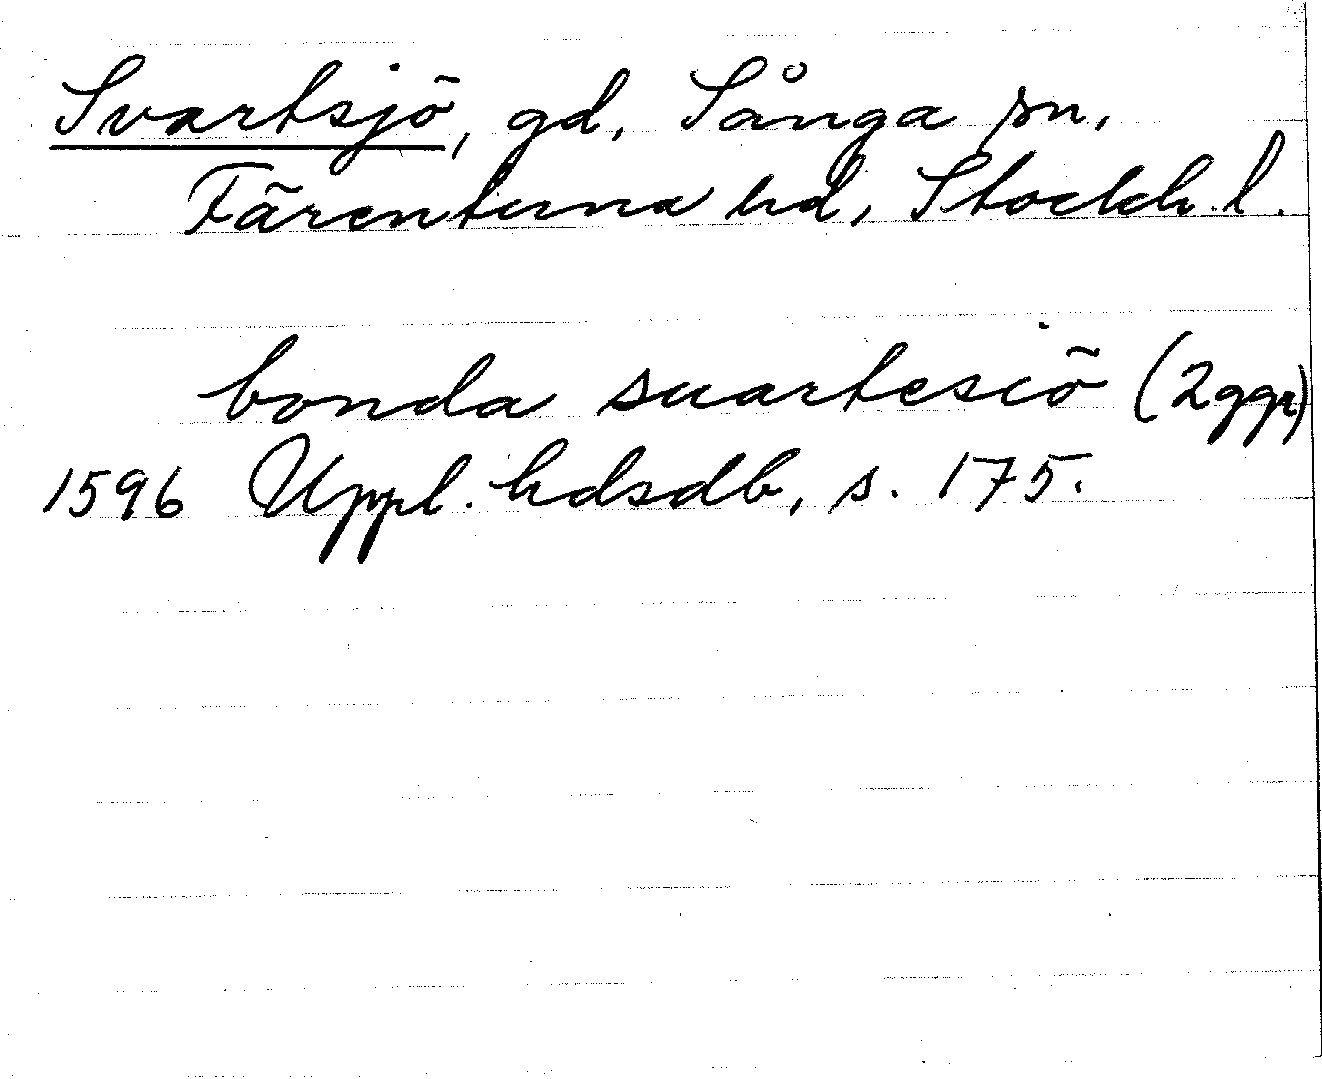 Svartsjö, gd, Sånga sn,
Färentuna hd, Stockh. l.
bonda suartesiö (2ggr)
1596 Uppl. hdsdb, s. 175.